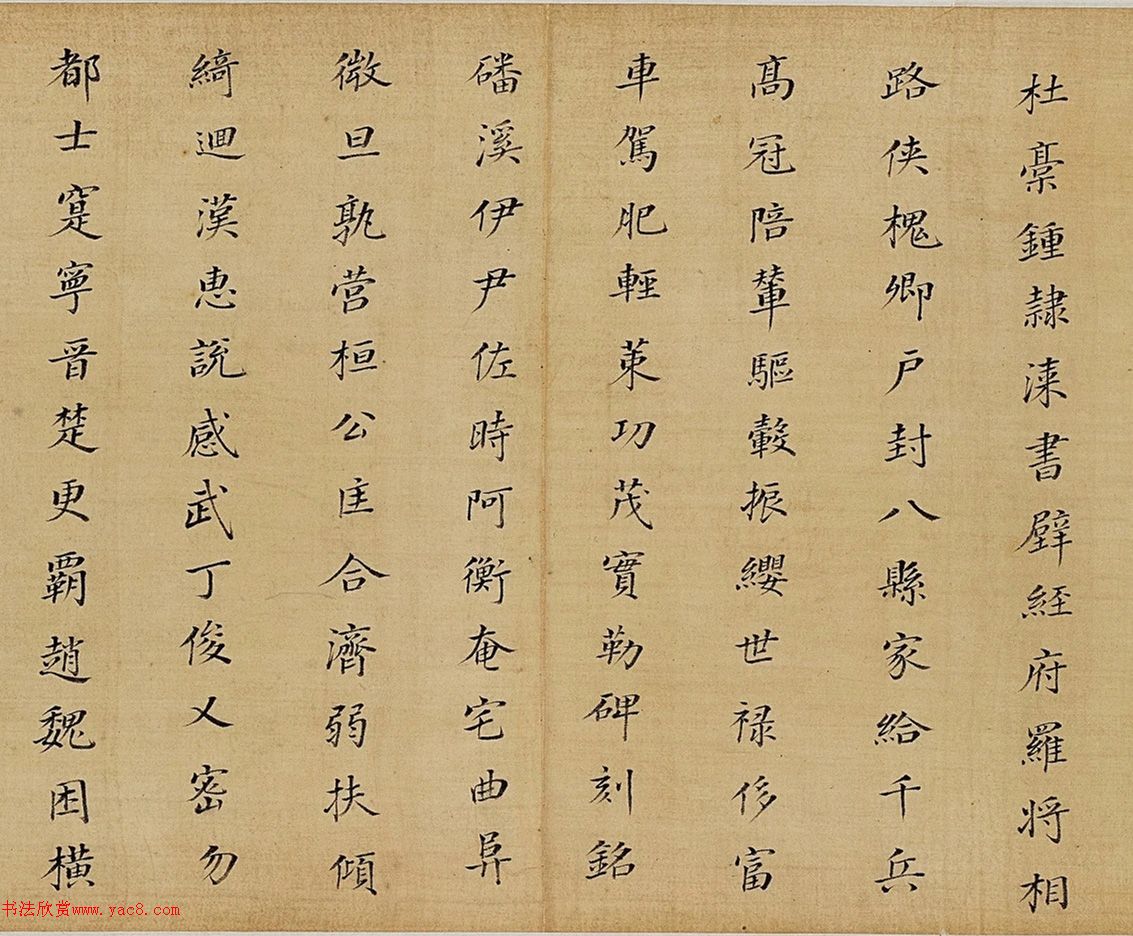 杜稾鍾隷漆書壁經府羅将相
路俠槐卿戸封八縣家給千兵
髙冠陪輦驅轂振纓世禄侈富
車駕肥輕䇿功茂實勒碑刻銘
磻溪伊尹佐時阿衡奄宅曲阜
微旦孰營桓公匡合濟弱扶傾
綺迴漢惠說感武丁俊乂密勿
都士寔寧晉楚更覇趙魏困橫
书法欣赏www.yac8.com